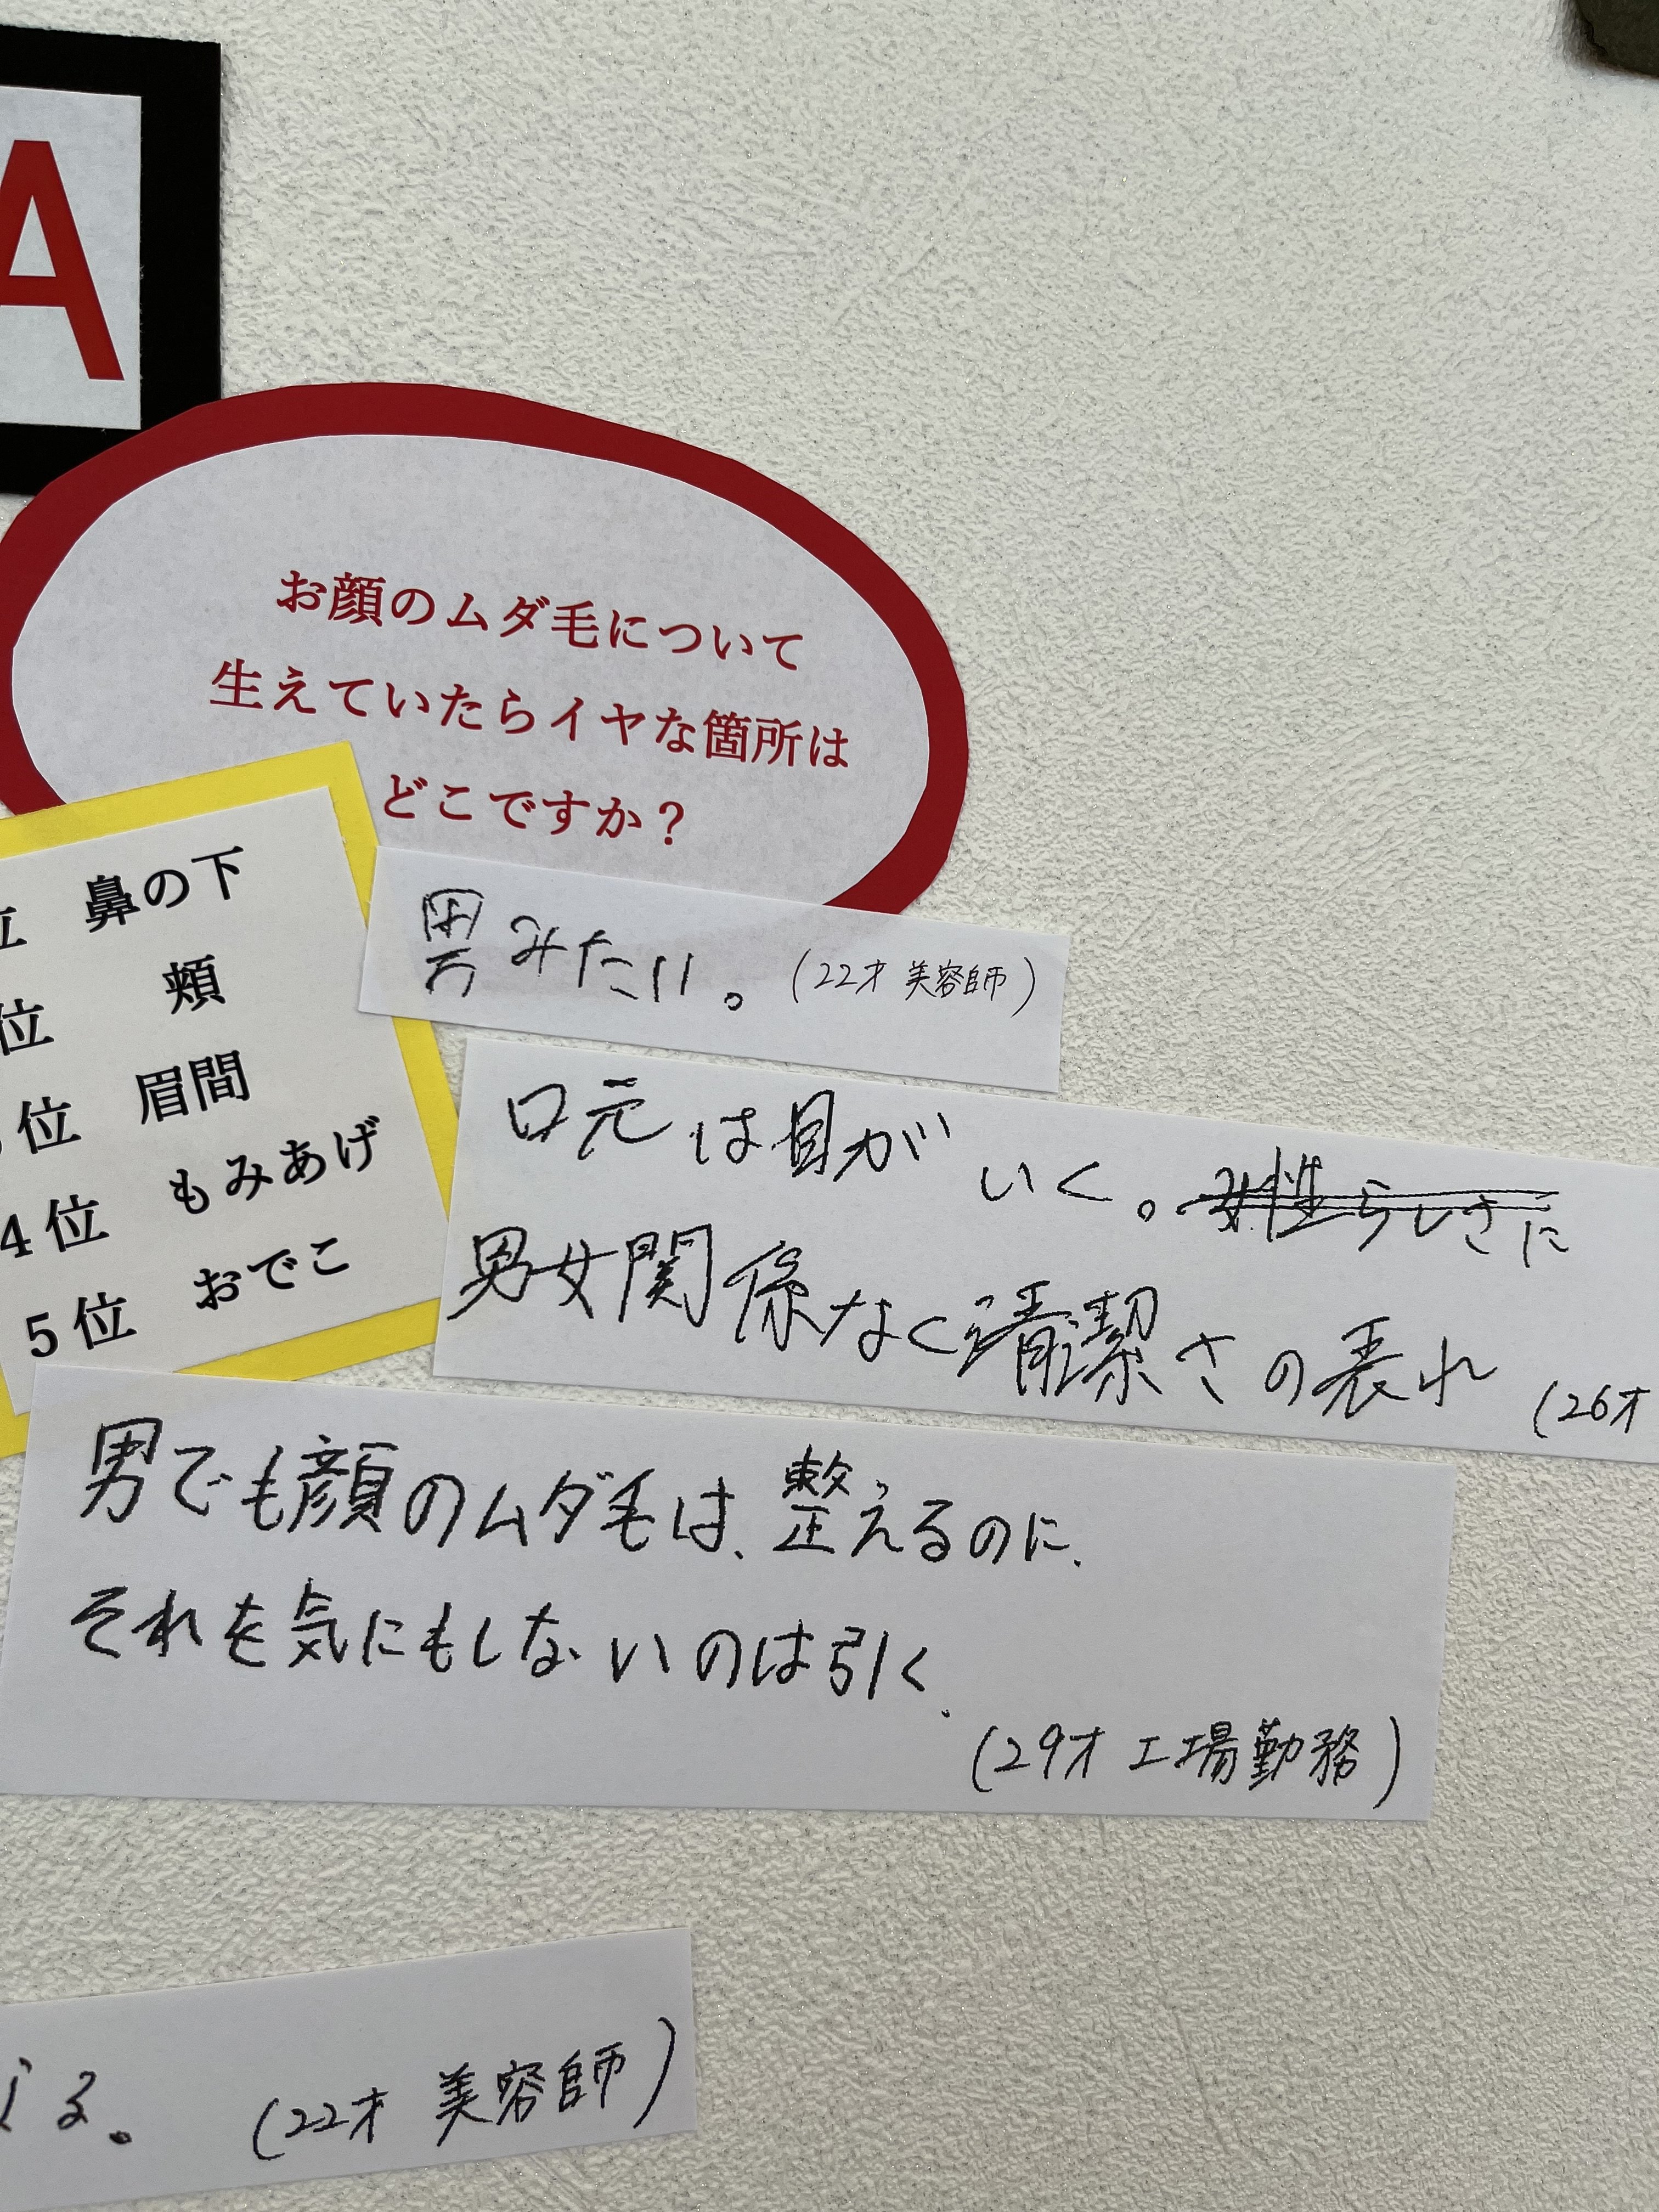 A
お顔のムダ毛について
生えていたらイヤな箇所は
どこですか？
位 鼻の下
位 頬
位 眉間
4位 もみあげ
5位 おでこ
男みたい。(22才 美容師)
口元は目がいく。女性らしさに
男女関係なく清潔さの表れ (26才
男でも顔のムダ毛は、整えるのに、
それを気にもしないのは引く。
(29才 工場勤務)
る。 (22才 美容師)